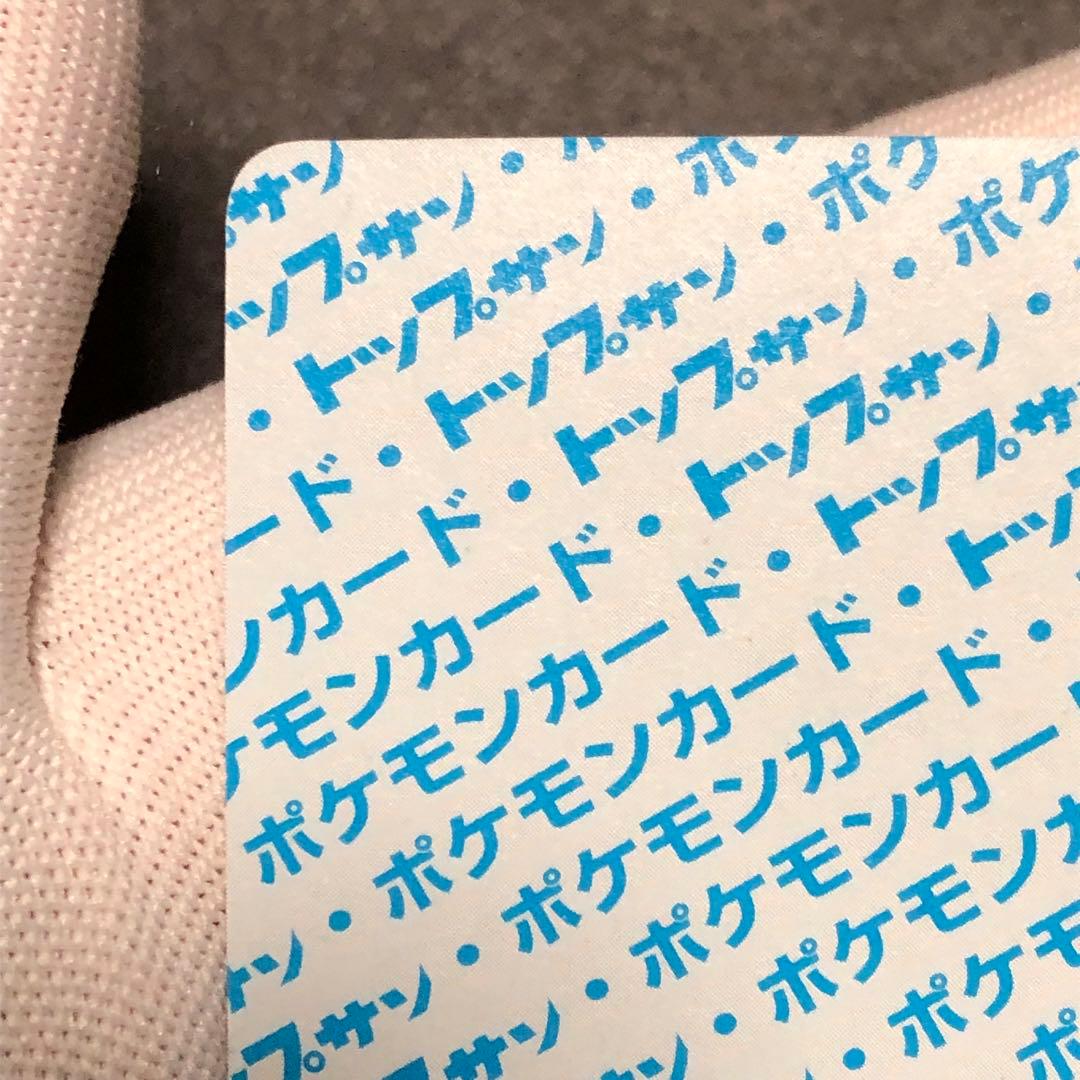 サン
ップサン・
・トップサン・ポ
ード・トップサン・ポケ
ンカード・トップサン・ポケ
ケモンカード・トップサン・
ポケモンカード・トップサ
・ポケモンカード・トッ
サン・ポケモンカード・
プサン・ポケモンカー
サン・ポケモンカ
ン・ポケモ
ポ